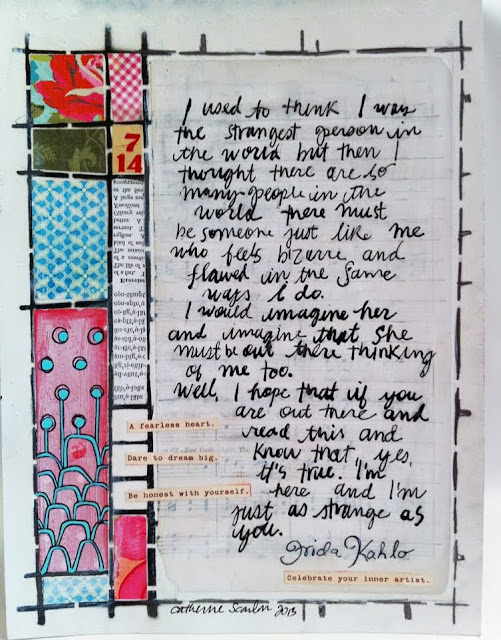 I used to think I was
the strangest person in
the world but then I
thought there are so
many people in the
world there must
be someone just like me
who feels bizarre and
flawed in the same
ways I do.
I would imagine her
and imagine that she
must be out there thinking
of me too.
Well, I hope that if you
are out there and
read this and
know that, yes,
it's true. I'm
here and I'm
just as strange as
you.
Frida Kahlo
Celebrate your inner artist.
7
14
A fearless heart.
Dare to dream big.
Be honest with yourself.
Catherine Scanlon 2013